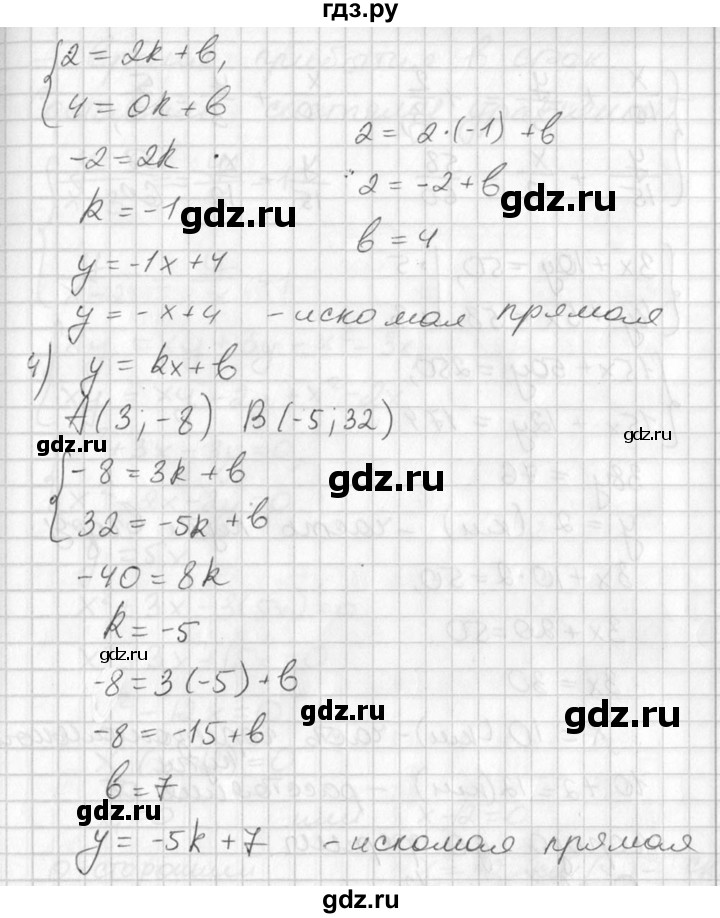 гдз.ру
2 = 2k + b,
4 = 0k + b
-2 = 2k
k = -1
2 = 2·(-1) + b
2 = -2 + b
b = 4
gdz.ru
gdz.ru
y = -1x + 4
y = -x + 4 - искомая прямая
4) y = kx + b
A(3; -8) B(-5; 32)
gdz.ru
gdz.ru
-8 = 3k + b
gdz.ru
32 = -5k + b
-40 = 8k
k = -5
gdz.ru
-8 = 3(-5) + b
gdz.ru
gdz.ru
-8 = -15 + b
b = 7
gdz.ru
y = -5k + 7 - искомая прямая
gdz.ru
gdz.ru